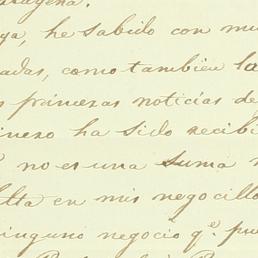 ya, he sabido con mu
adas, como tambien la
s primeras noticias de
inero ha sido recibi
no es una suma
lta en mis negocillo
ninguno negocio q.e pu